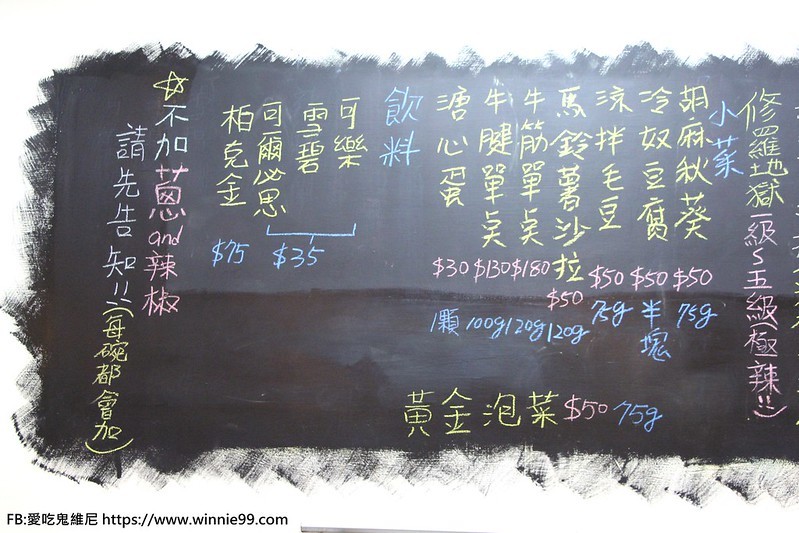 修羅地獄一級~五級(極辣!!)
小菜
胡麻秋葵 $50 75g
冷奴豆腐 $50 半塊
涼拌毛豆 $50 75g
馬鈴薯沙拉 $50 120g
牛筋單點 $180 120g
牛腱單點 $130 100g
溏心蛋 $30 1顆
黃金泡菜 $50 75g
飲料
可樂
雪碧
可爾必思
$35
柏克金 $75
☆不加蔥and辣椒
請先告知!!(每碗都會加)
FB:愛吃鬼維尼 https://www.winnie99.com